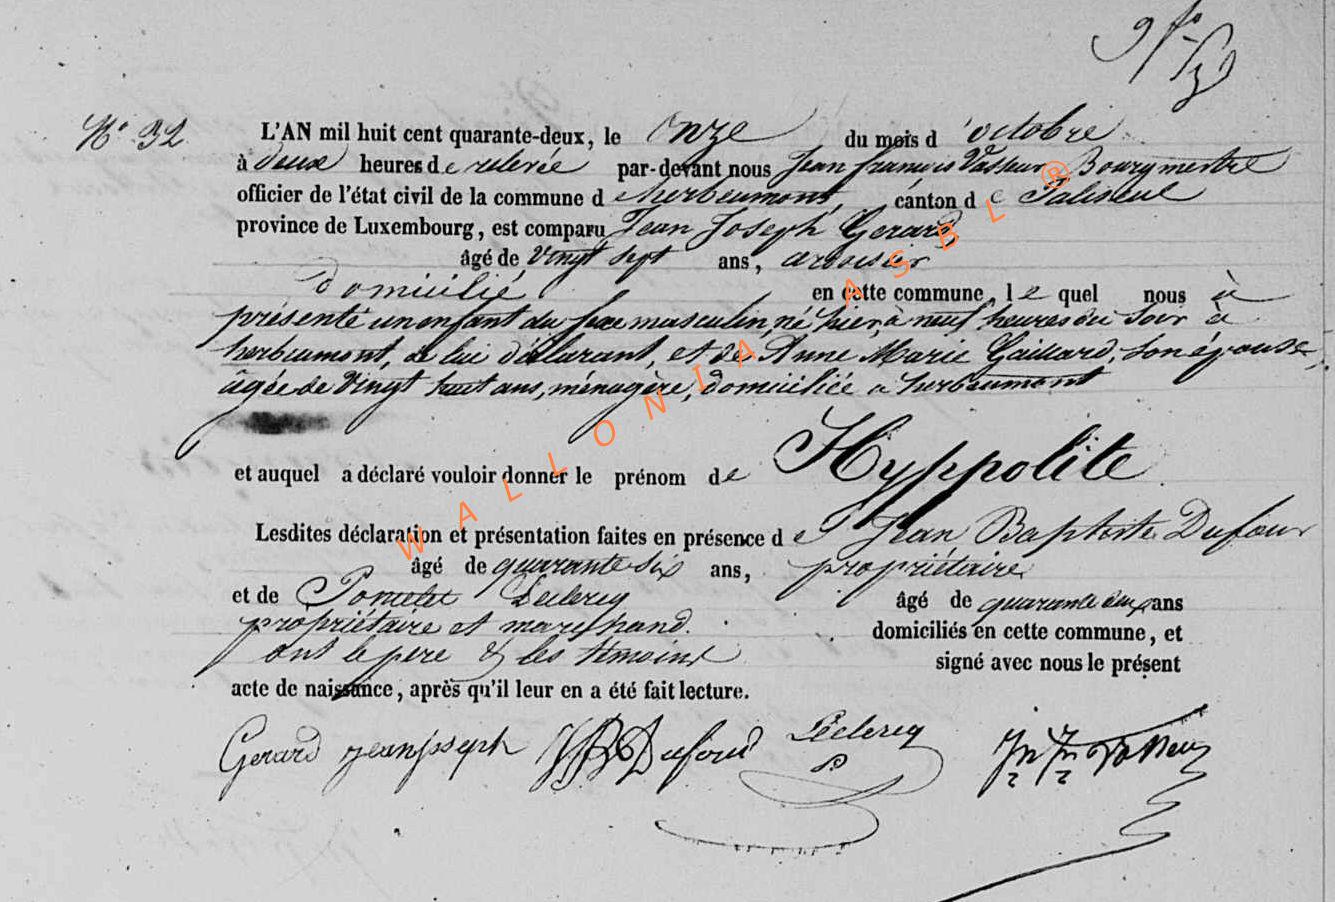 N° 32
L'AN mil huit cent quarante-deux, le onze du mois d'octobre
à deux heures de relevée par-devant nous Jean françois Vasseur Bourgmestre
officier de l'état civil de la commune d'herbeumont, canton de Paliseul
province de Luxembourg, est comparu Jean Joseph Gerard
âgé de vingt sept ans, ardoisier
domicilié en cette commune, lequel nous à
présenté un enfant du sexe masculin, né hier, à neuf heures du soir à
herbeumont, de lui déclarant, et de Anne Marie Gaillard, son épouse,
âgée de vingt huit ans, ménagère, domiciliée à herbeumont
et auquel a déclaré vouloir donner le prénom de Hyppolite
Lesdites déclaration et présentation faites en présence de Jean Baptiste Dufour
âgé de quarante six ans, propriétaire
et de Leclercq âgé de quarante ans
propriétaire et marchand. domiciliés en cette commune, et
ont le père & les témoins signé avec nous le présent
acte de naissance, après qu'il leur en a été fait lecture.
Gerard jean joseph JB Dufour Leclercq
P
WALLONIA ASBL ®